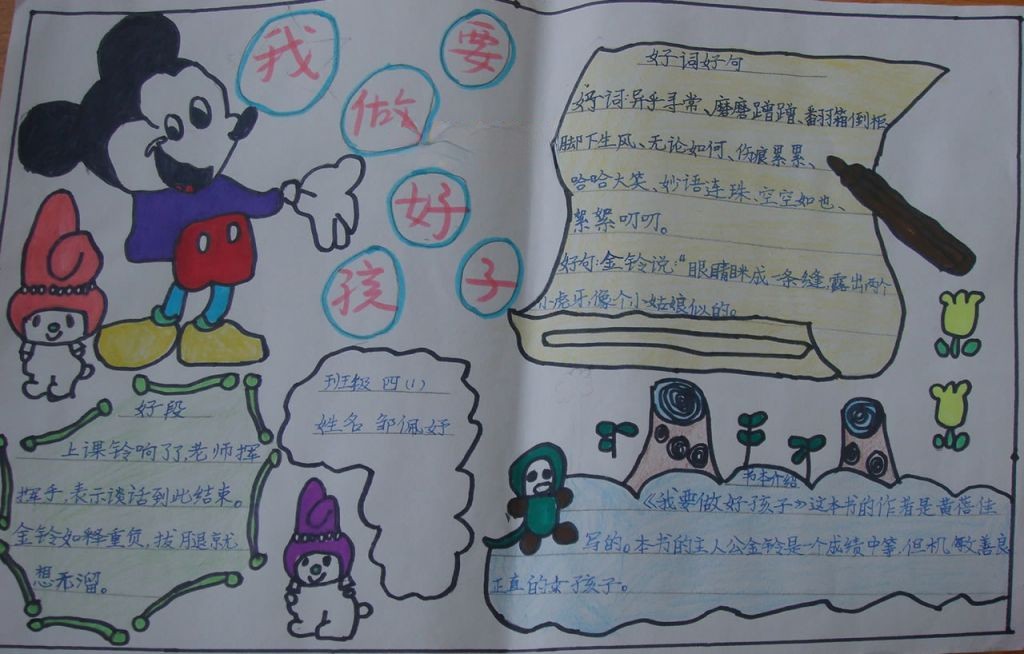 我要做好孩子
好词好句
好词:异乎寻常、磨磨蹭蹭、翻箱倒柜
脚下生风、无论如何、伤痕累累、
哈哈大笑、妙语连珠、空空如也、
絮絮叨叨。
好句:金铃说:“眼睛眯成一条缝,露出两个
小虎牙,像个小姑娘似的。
班级 四(1)
姓名 邹佩妤
好段
上课铃响了,老师挥
挥手,表示谈话到此结束。
金铃如释重负,拔腿就
想开溜。
书本介绍
《我要做好孩子》这本书的作者是黄蓓佳
写的。本书的主人公金铃是一个成绩中等,但机敏善良
正直的女孩子。